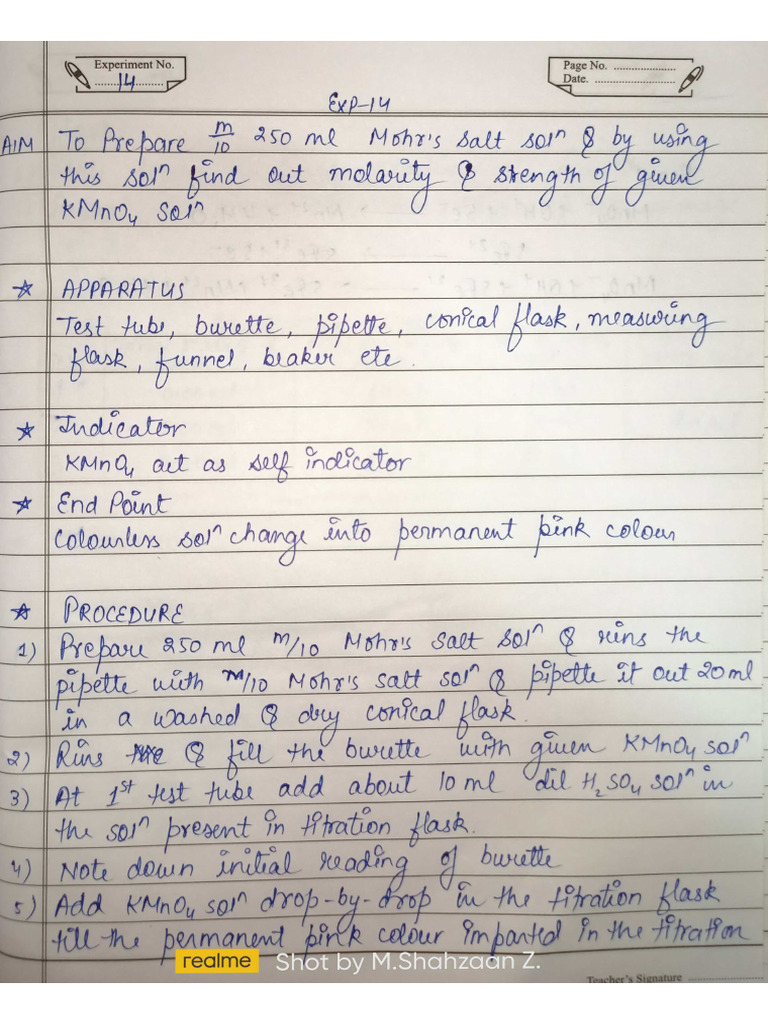 Experiment No.
14
Page No. ....................
Date. ........................
EXP-14
AIM To Prepare m/10 250 ml Mohr's salt solⁿ & by using
this solⁿ find out molarity & stength of given
KMnO₄ Solⁿ
☆ APPARATUS
Test tube, burette, pipette, conical flask, measuring
flask, funnel, beaker etc.
☆ Indicator
KMnO₄ act as self indicator
☆ End Point
Colourless solⁿ change into permanent pink colour
☆ PROCEDURE
1) Prepare 250 ml m/10 Mohr's salt solⁿ & rins the
pipette with m/10 Mohr's salt solⁿ & pipette it out 20 ml
in a washed & dry conical flask.
2) Rins & fill the burette with given KMnO₄ solⁿ
3) At 1ˢᵗ test tube add about 10 ml dil H₂SO₄ solⁿ in
the solⁿ present in titration flask.
4) Note down initial reading of burette
5) Add KMnO₄ solⁿ drop-by-drop in the titration flask
till the permanent pink colour imparted in the titration
realme Shot by M.Shahzaan Z.
Teacher's Signature ........................